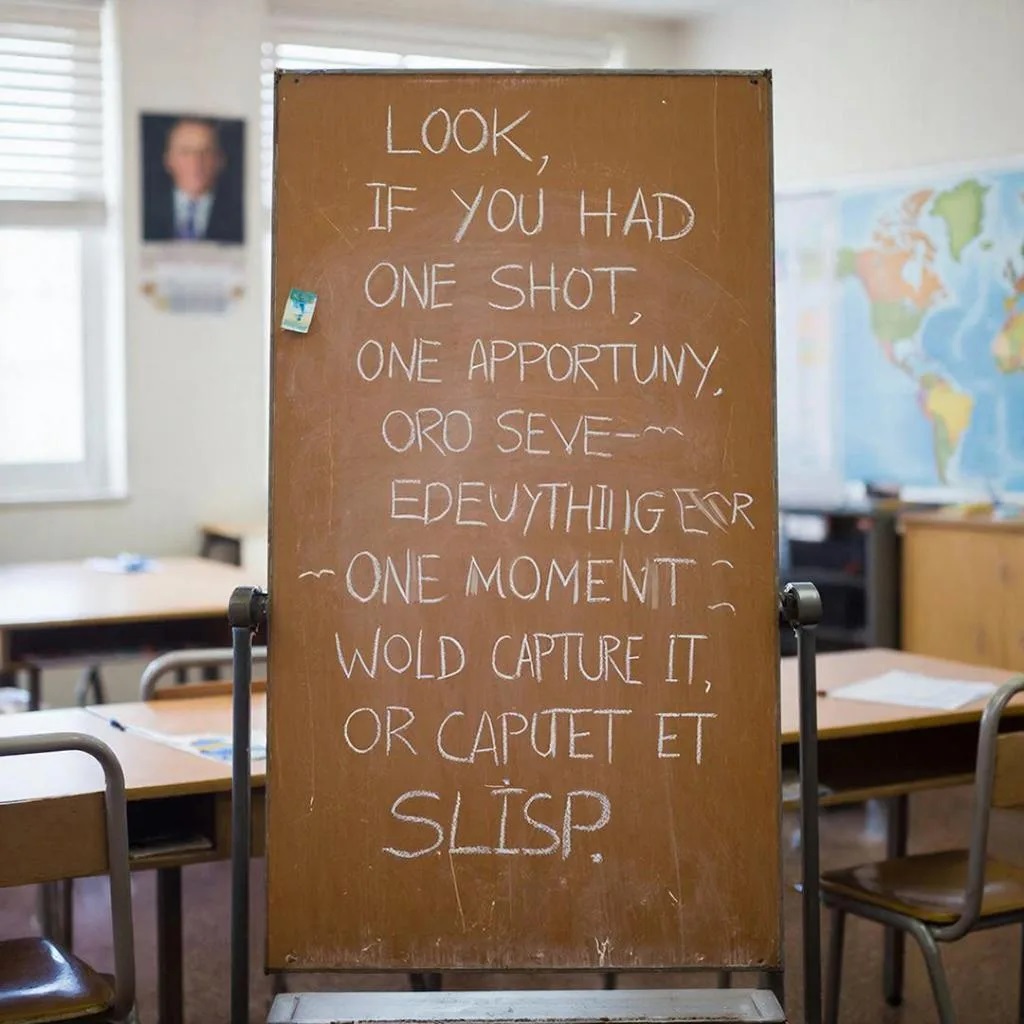 LOOK,
IF YOU HAD
ONE SHOT,
ONE APPORTUNY,
ORO SEVE-
EDEUYTHIIIG
ONE MOMENT
WOLD CAPTURE IT,
OR CAPUTET ET
SLISP.